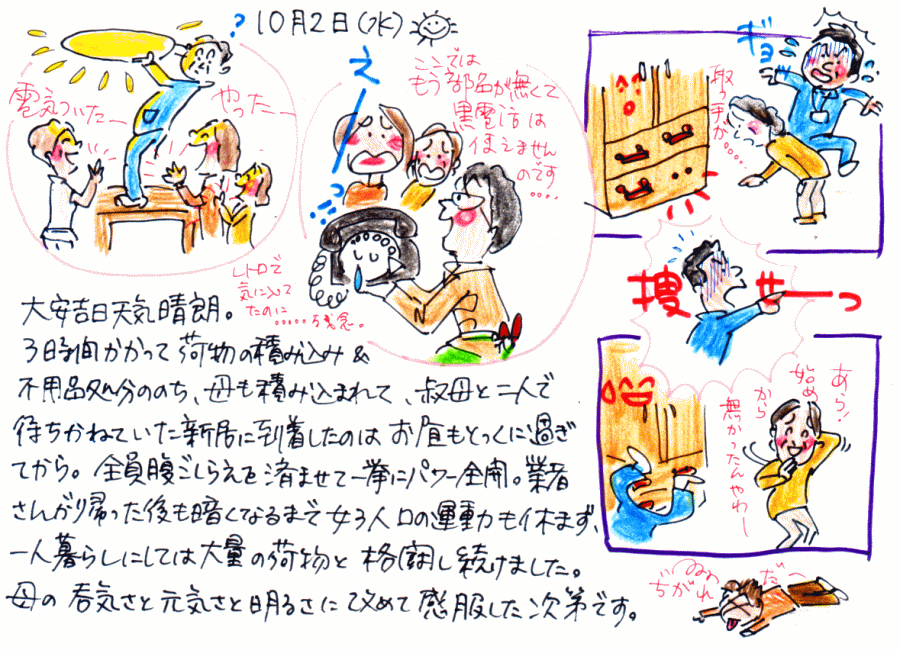 10月2日(水)
?
電気ついたー
やったー
えーっ!!
ここでは
もう部品が無くて
黒電話は
使えません
のです
・・・・
レトロで
気に入って
たのに
・・・・・残念。
ギョ
取っ手が
・・・・・
捜せーっ
あら!
始め
から
無かったんやわー
だー
ぢがれ
大安吉日天気晴朗。
3時間かかって荷物の積み込み&
不用品処分ののち、母も積み込まれて、叔母と二人で
待ちかねていた新居に到着したのはお昼もとっくに過ぎ
てから。全員腹ごしらえを済ませて一挙にパワー全開。業者
さんが帰った後も暗くなるまで女3人口の運動も休まず、
一人暮らしにしては大量の荷物と格闘し続けました。
母の呑気さと元気さと明るさに改めて感服した次第です。